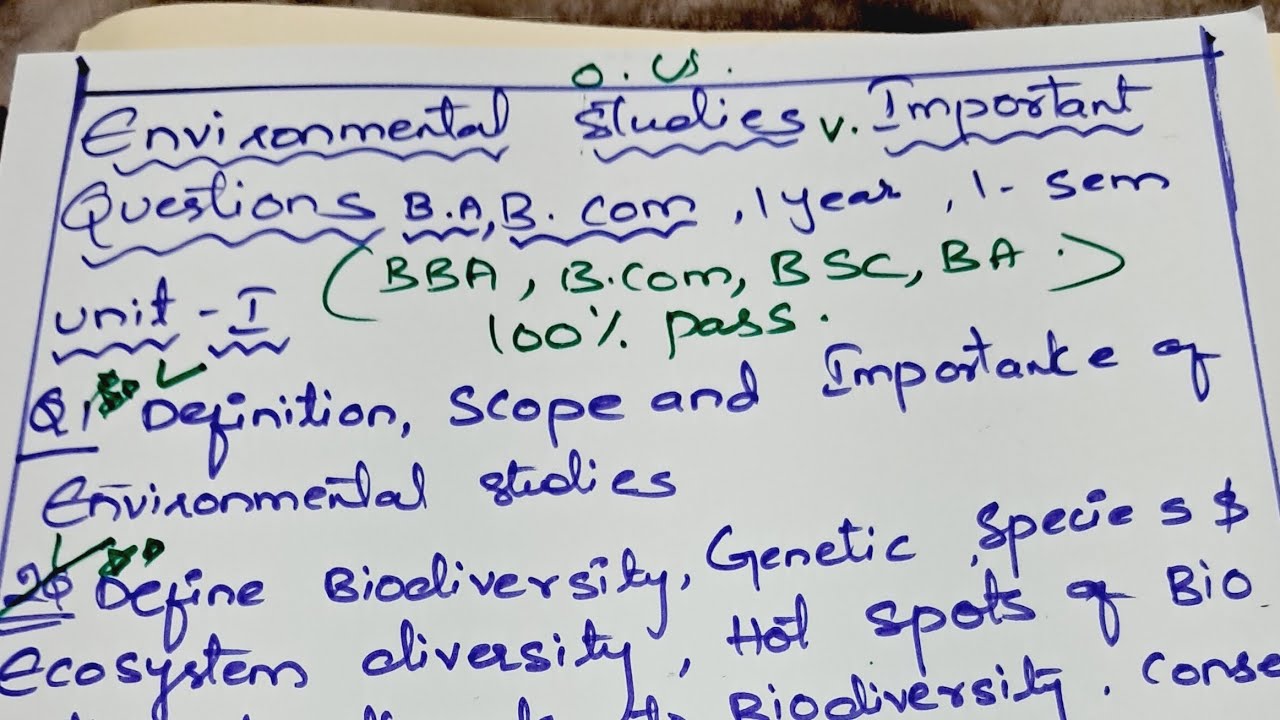 O. Us.
Environmental Studies v. Important
Questions B.A, B. com, 1 year, 1- Sem
(BBA, B.Com, BSC, BA.)
unit - I
100% pass.
Q1 Definition, Scope and Importance of
Environmental studies
2Q Define Biodiversity, Genetic, Species $
Ecosystem diversity, Hot spots of Bio
Biodiversity. Conse